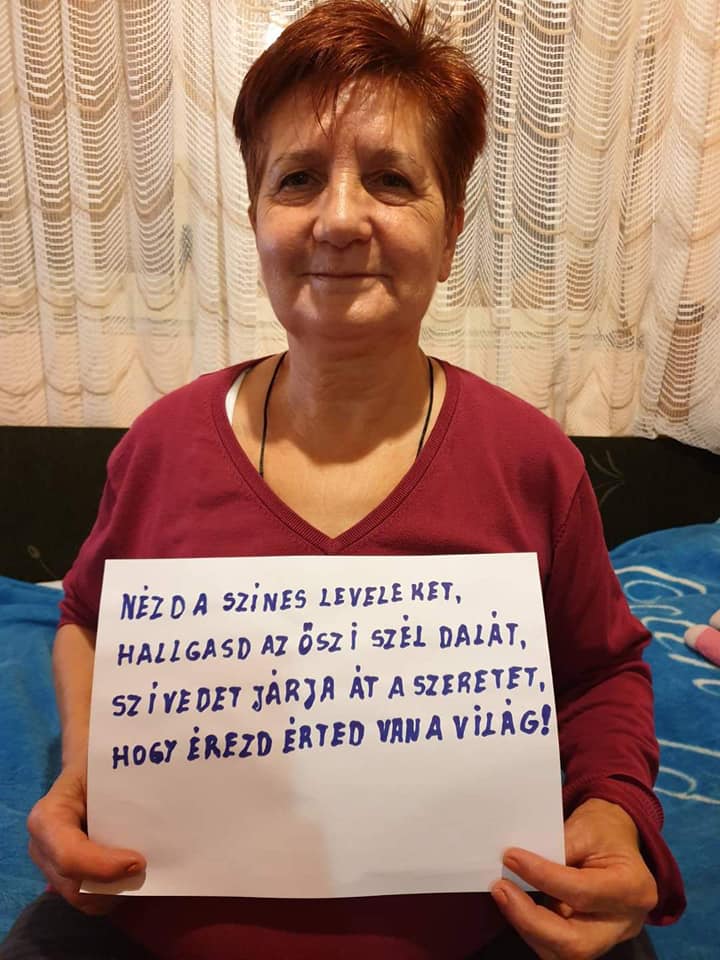 NÉZD A SZÍNES LEVELEKET,
HALLGASD AZ ŐSZI SZÉL DALÁT,
SZÍVEDET JÁRJA ÁT A SZERETET,
HOGY ÉREZD ÉRTED VAN A VILÁG!